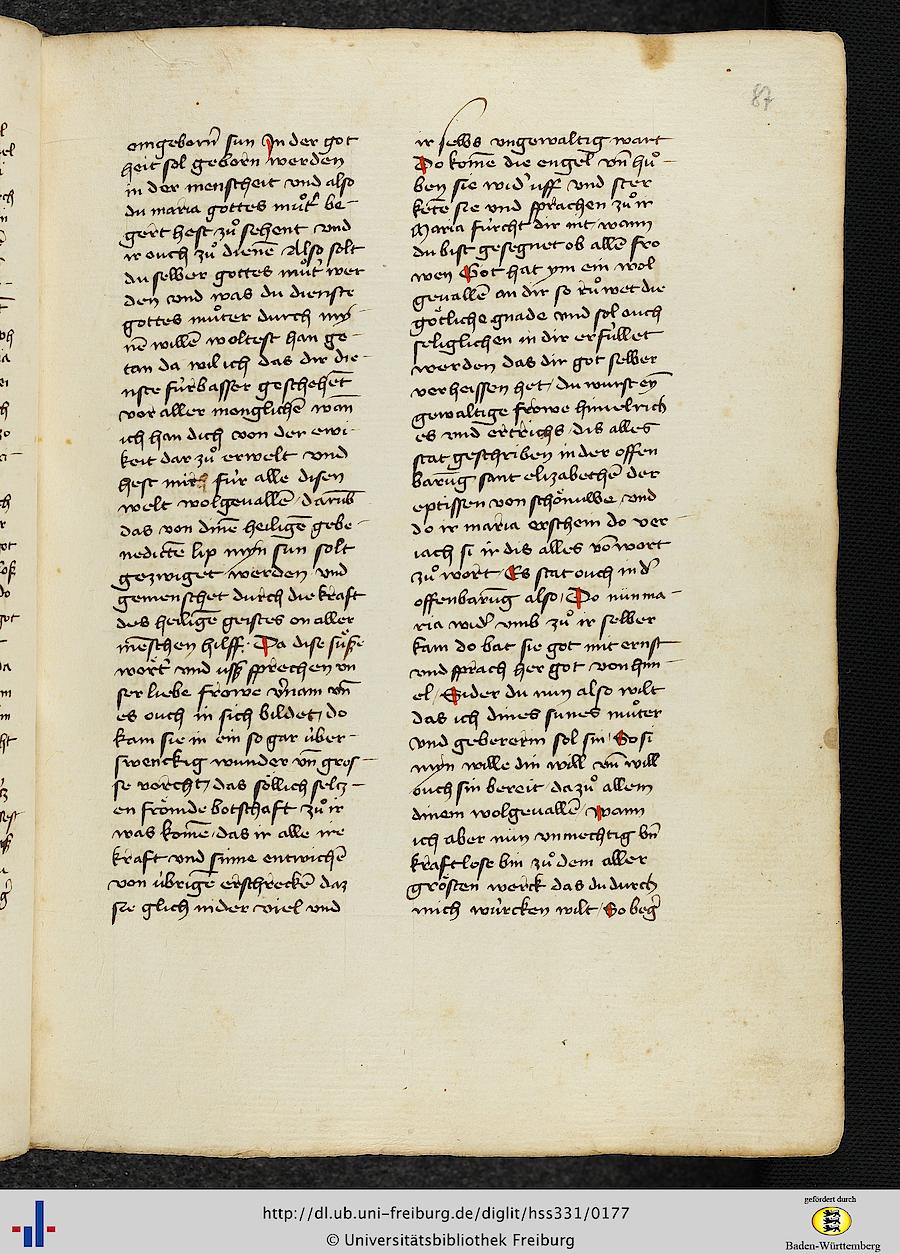 87
eingeborn̄ sun Jn der got
heit sol geborn werden
in der menscheit vnd also
du maria gottes muͦt' be-
gert hest zuͦ sehent vnd
ir ouch zuͦ dienē Also solt
du selber gottes muͦt' wer
den vnd was du dienste
gottes muͦter durch my-
nē willē woltest han ge-
tan da wil ich das dir die-
nste fúrbasser geschehēt
vor aller menglichē wan̄
ich han dich von der ewi-
keit dar zuͦ erwelt vnd
hest mir fúr alle disen
welt wolgeuallē / darūb
das von dinē heiligē gebe-
nedictē lip myn sun solt
gezwiget werden vnd
gemenschet durch die kraft
des heiligē geistes on aller
mēschen hilff · Da dise suͤsse
wort vnd vssz sprechen vn
ser liebe frowe v'nam vn̄
es ouch in sich bildet / do
kam sie in ein so gar úber-
swenckig wunder vn̄ gros-
se vorcht / das soͤllich seltz-
en froͤmde botschaft zuͦ ir
was komē / das ir alle ire
kraft vnd sinne entwichē
von úbrigē erschreckē daz
sie glich nider viel vnd
ir selbs vngewaltig wart
Do komē die engel vn̄ huͦ-
ben sie wid' vff vnd ster
ketē sie vnd sprachen zuͦ ir
Maria fúrcht dir nit wann
du bist gesegnet ob allē fro
wen Got hat ym ein wol
geuallē an dir so ruͦwet die
goͤtliche gnade vnd sol ouch
seliglichen in dir erfúllet
werden das dir got selber
verheissen het / du wurst ey̅
gewaltige frowe himelrich
es vnd ertrichs / dis alles
stat geschriben in der offen
barūg sant elizabethē der
eptissen von schoͤnuwe / vnd
do ir maria erschein do ver
iach si ir dis alles vō wort
zuͦ wort / Es stat ouch in d'
offenbarūg also / Do nun ma-
ria wid' vmb zuͦ ir selber
kam do bat sie got mit ernst
vnd sprach her got von him-
el / Sider du nun also wilt
das ich dines sunes muͦter
vnd gebererin sol sin / So si
myn wille din will vn̄ will
ouch sin bereit da zuͦ allem
dinem wolgeuallē / wann
ich aber nun vnmechtig vn̄
kraftlose bin zuͦ dem aller
groͤsten werck das du durch
mich wúrcken wilt / So beg'
http://dl.ub.uni-freiburg.de/diglit/hss331/0177
© Universitätsbibliothek Freiburg
gefördert durch
Baden-Württemberg